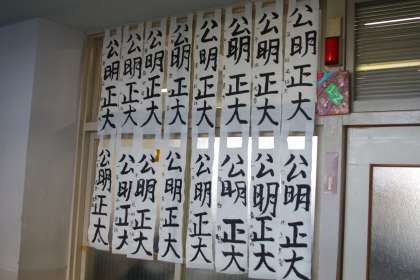 公明正大
公明正大
公明正大
公明正大
公明正大
公明正大
公明正大
公明正大
公明正大
公明正大
公明正大
公明正大
公明正大
公明正大
公明正大
公明正大